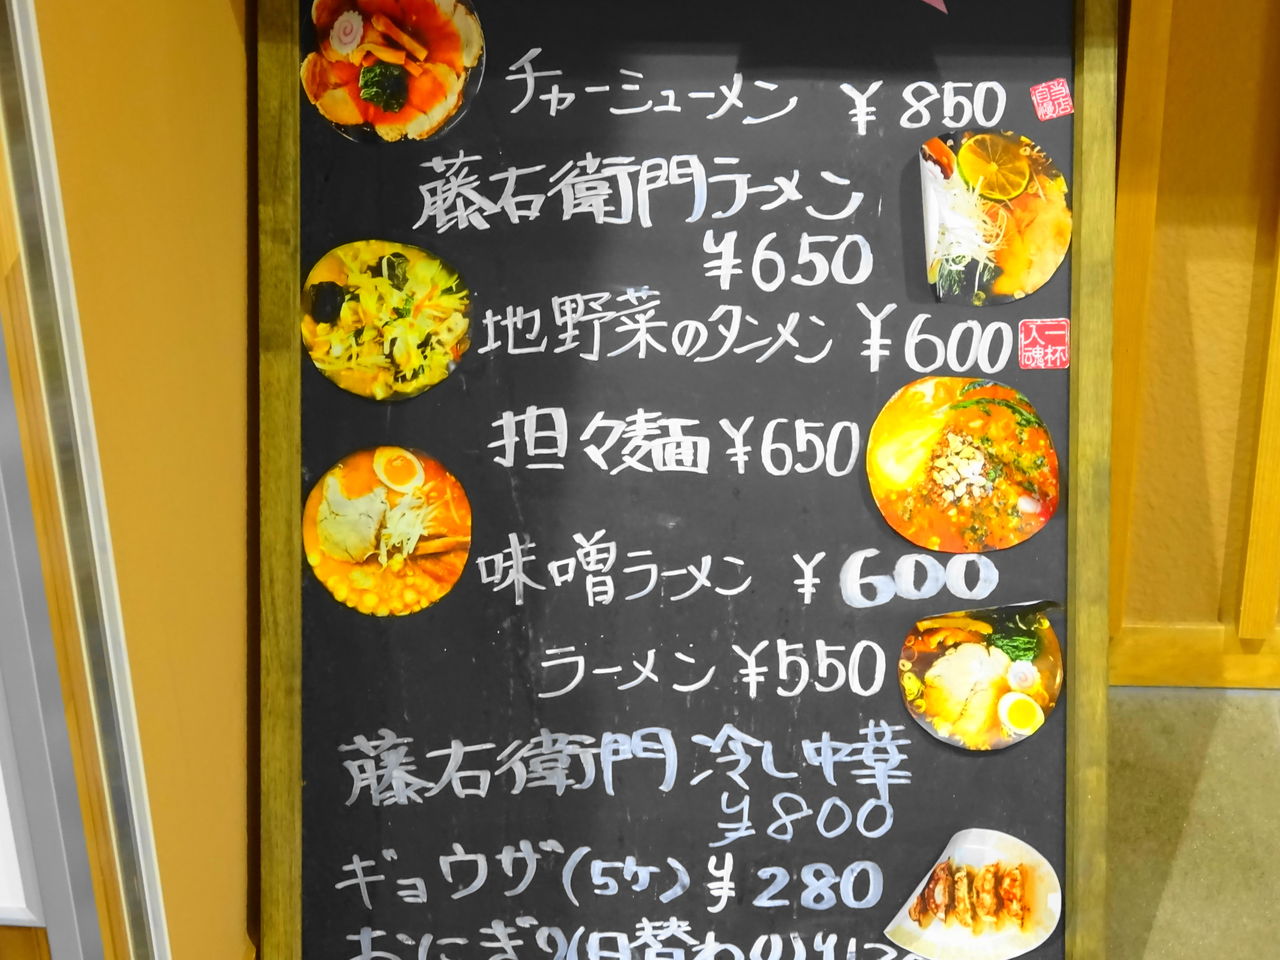 チャーシューメン ¥850
当店自慢
藤右衛門ラーメン
¥650
地野菜のタンメン ¥600
一杯入魂
担々麺 ¥650
味噌ラーメン ¥600
ラーメン ¥550
藤右衛門 冷し中華
¥800
ギョウザ(5ケ) ¥280
おにぎり(日替わり)